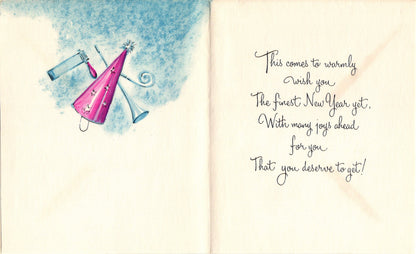 This comes to warmly
wish you
The finest New Year yet,
With many joys ahead
for you
That you deserve to get!